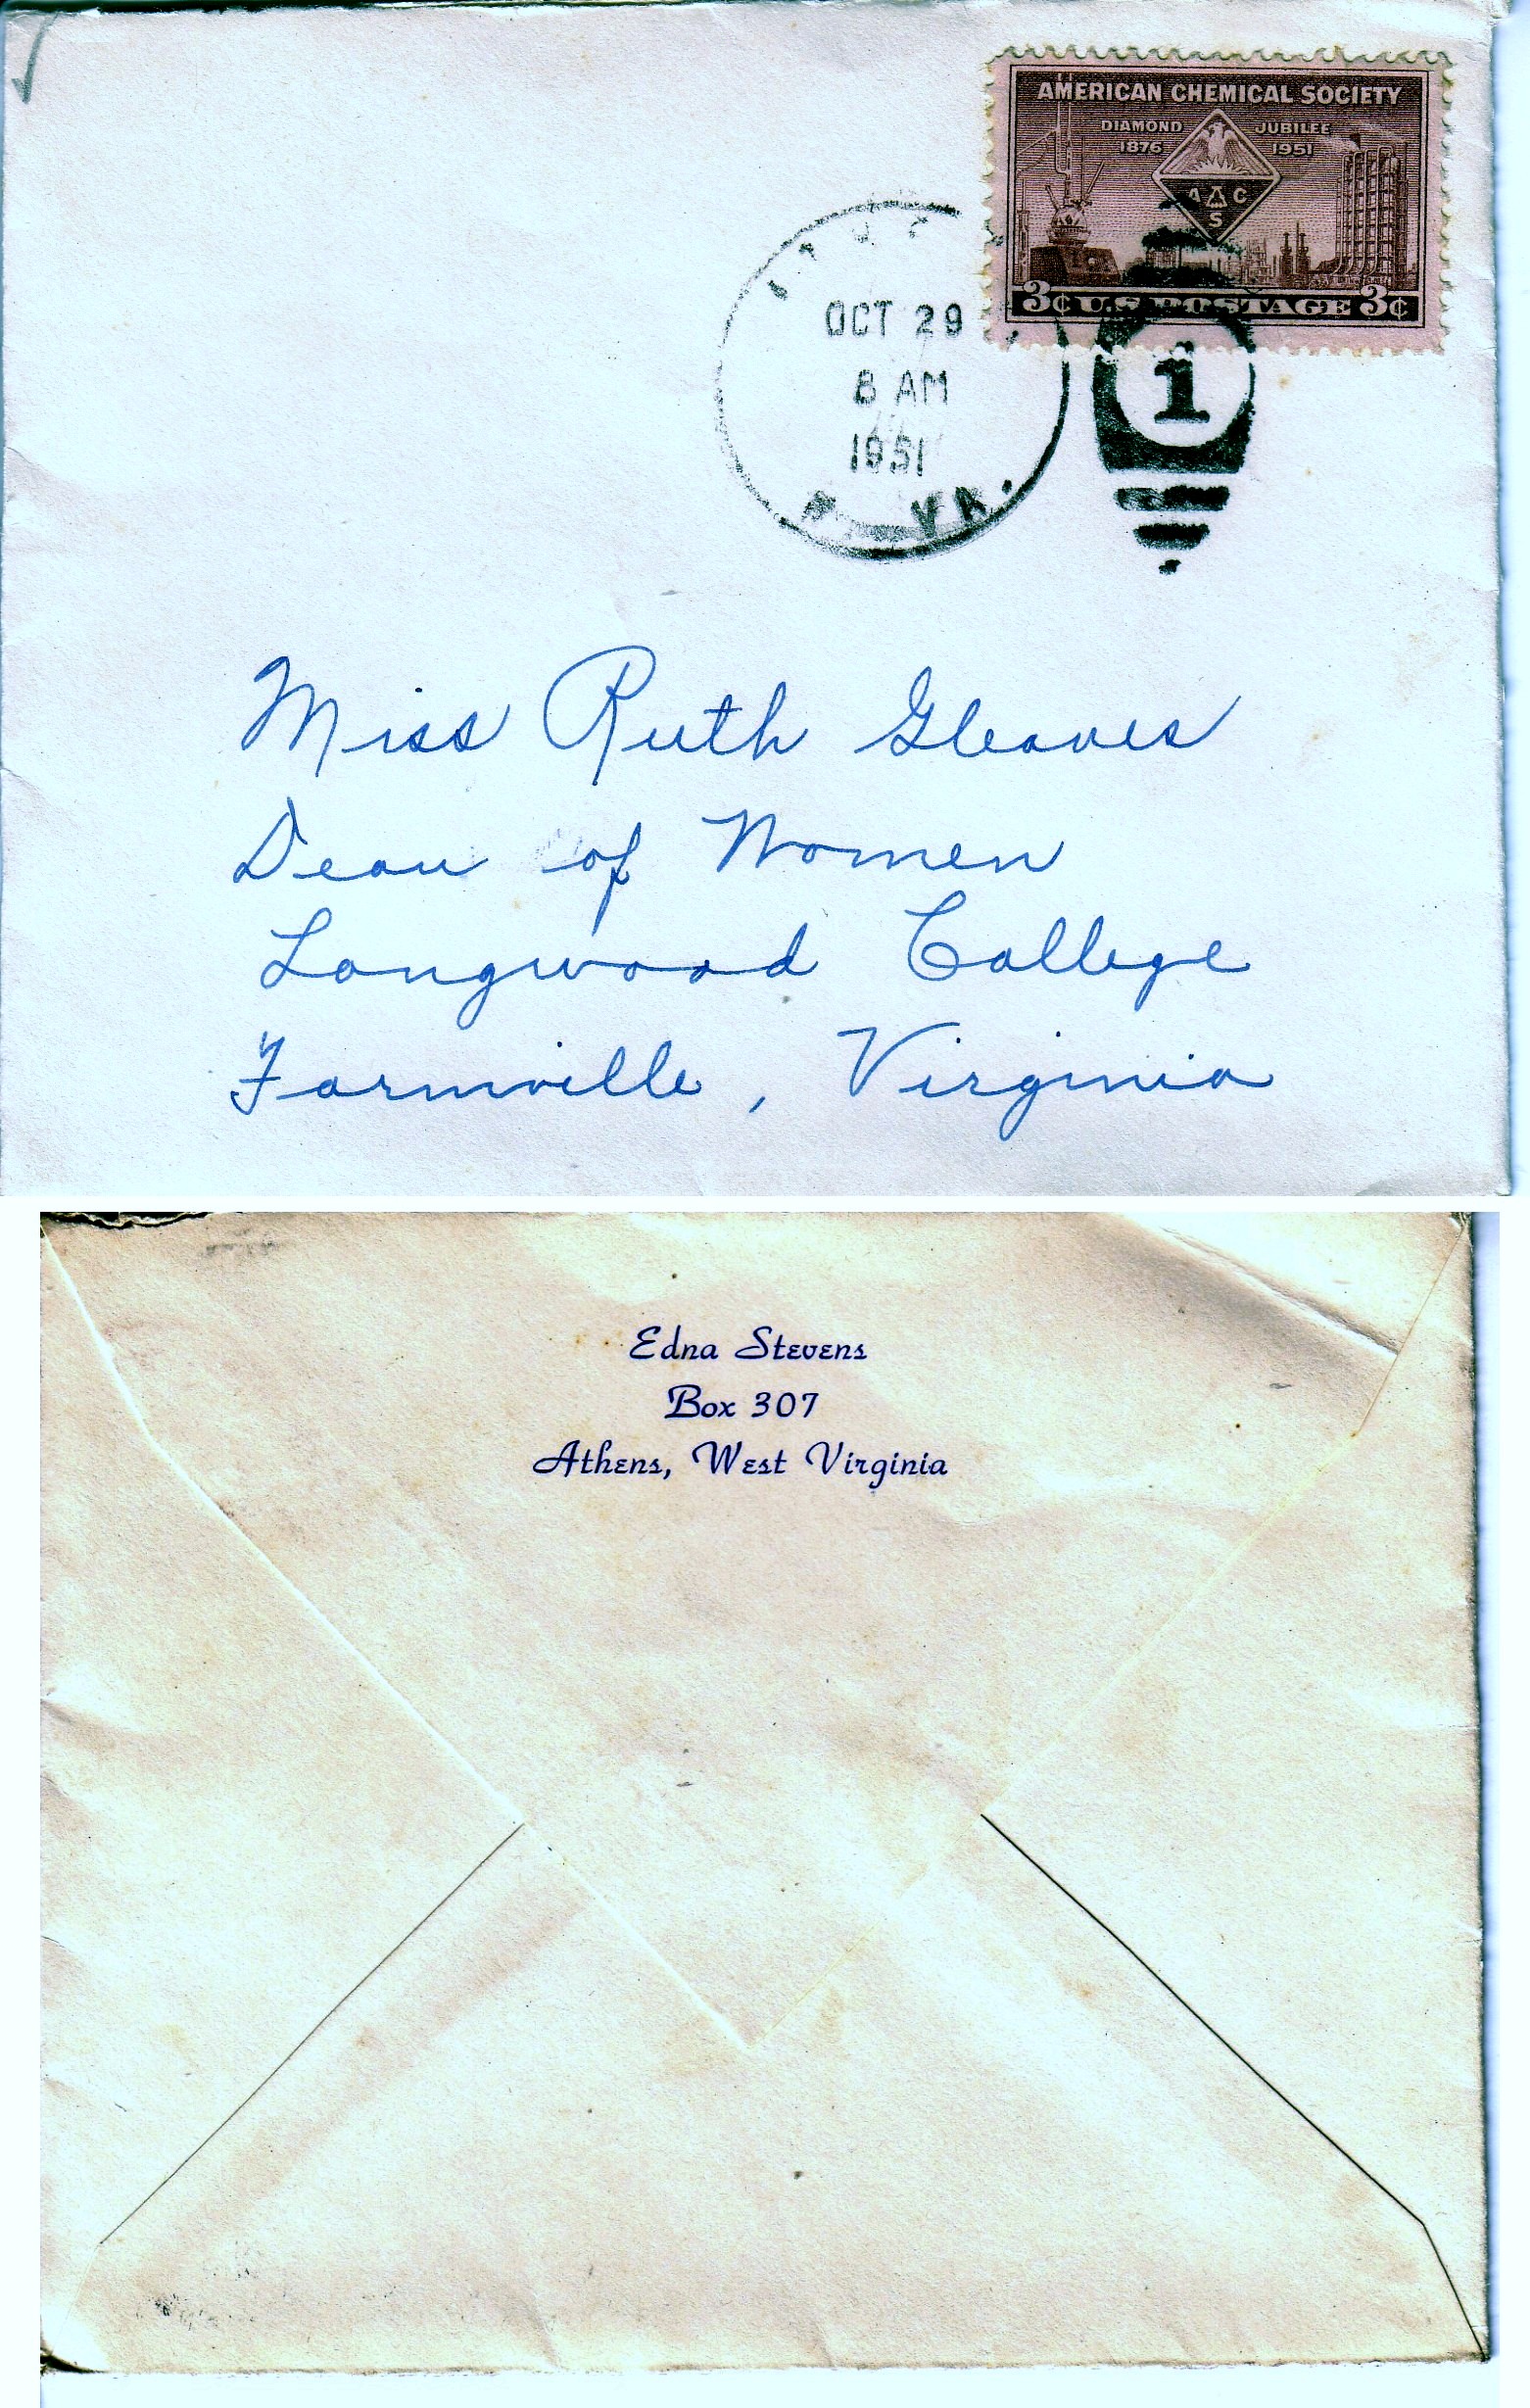 AMERICAN CHEMICAL SOCIETY
DIAMOND JUBILEE
1876 1951
A C
S
3¢ U.S. POSTAGE 3¢
OCT 29
8 AM
1951
VA.
1
Miss Ruth Gleaves
Dean of Women
Longwood College
Farmville, Virginia
Edna Stevens
Box 307
Athens, West Virginia